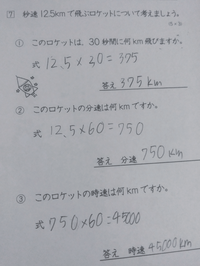 ７ 秒速12.5kmで飛ぶロケットについて考えましょう。
① このロケットは、30秒間に何km飛びますか。
式 12.5×30=375
答え 375km
② このロケットの分速は何kmですか。
12.5×60=750
答え 分速 750km
③ このロケットの時速は何kmですか。
式 750×60=45000
答え 時速45000km